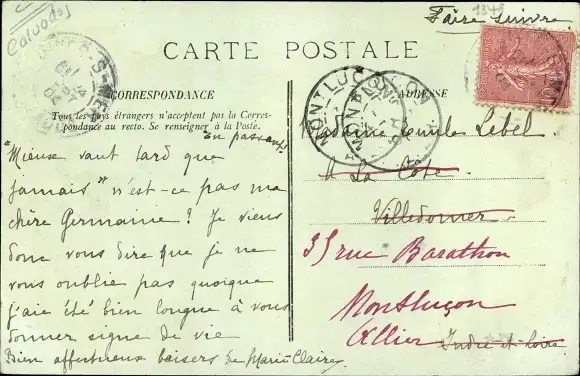 Calvados
Faire suivre
1349
CARTE POSTALE
CORRESPONDANCE
ADRESSE
Tous les pays étrangers n'acceptent pas la Corres-
pondance au recto. Se renseigner à la Poste.
En passant
"Mieux vaut tard que
jamais" n'est-ce pas ma
chère Germaine? Je viens
donc vous dire que je ne
vous oublie pas quoique
j'aie été bien longue à vous
donner signe de vie
Bien affectueux baisers de Marie-Claire
MONTLUÇON
Madame Lebel
A La Côte
Villedomer
35 rue Barathon
Montluçon
Allier
Indre et Loire